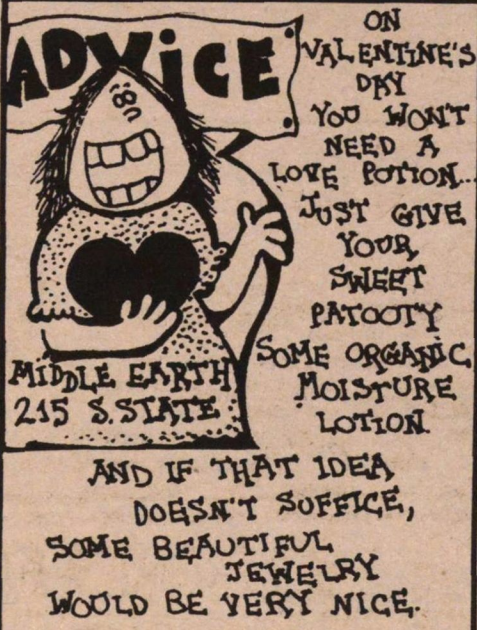 ADVICE
ON
VALENTINE'S
DAY
YOU WON'T
NEED A
LOVE POTION...
JUST GIVE
YOUR
SWEET
PATOOTY
SOME ORGANIC
MOISTURE
LOTION.
MIDDLE EARTH
215 S. STATE
AND IF THAT IDEA
DOESN'T SUFFICE,
SOME BEAUTIFUL
JEWELRY
WOULD BE VERY NICE.